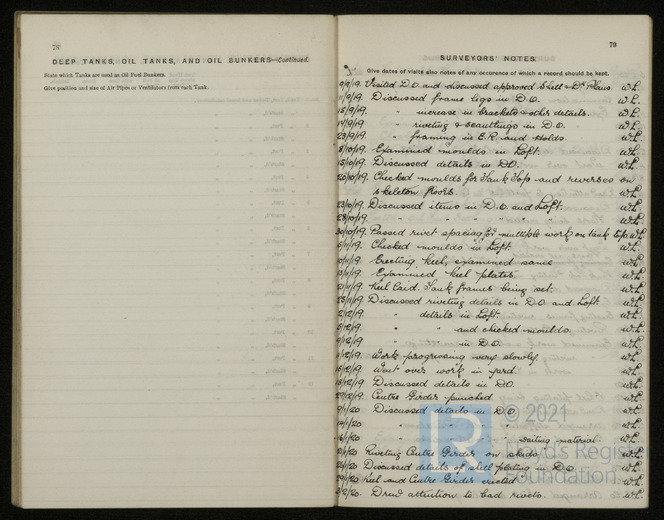 78
DEEP TANKS, OIL TANKS, AND OIL BUNKERS—Continued.
State which Tanks are used as Oil Fuel Bunkers.
Give position and size of Air Pipes or Ventilators from each Tank.
79
SURVEYORS' NOTES.
Give dates of visits also notes of any occurence of which a record should be kept.
9/9/19. Visited D.O. and discussed approved Shell & Dk Plans. W.L.
11/9/19. Discussed frame legs in D.O. W.L.
15/9/19. " increase in brackets & other details. W.L.
17/9/19. " riveting & scantlings in D.O. W.L.
23/9/19. " framing in E.R. and Holds. W.L.
8/10/19. Examined moulds in Loft. W.L.
15/10/19. Discussed details in D.O. W.L.
20/10/19. Checked moulds for Tank Top and reverses on
skeleton floors. W.L.
23/10/19. Discussed items in D.O. and Loft. W.L.
28/10/19. " " " " " W.L.
30/10/19. Passed rivet spacing for multiple work on tank top W.L.
5/11/19. Checked moulds in Loft W.L.
10/11/19. Erecting keel, examined same W.L.
Examined keel plates. W.L.
Keel laid. Tank frames being set. W.L.
Discussed riveting details in D.O. and Loft. W.L.
2/12/19. " details in Loft. W.L.
5/12/19. " " and checked moulds. W.L.
" " in D.O. W.L.
Work progressing very slowly. W.L.
Went over work in yard. W.L.
Discussed details in D.O. W.L.
Centre Girder punched W.L.
Discussed details in D.O. W.L.
14/1/20 " " " W.L.
" " " waiting material. W.L.
Riveting Centre Girder on skids W.L.
Discussed details of shell plating in D.O. W.L.
Keel and Centre Girder erected W.L.
Drew attention to bad rivets. W.L.
© 2021
Lloyd's Register
Foundation